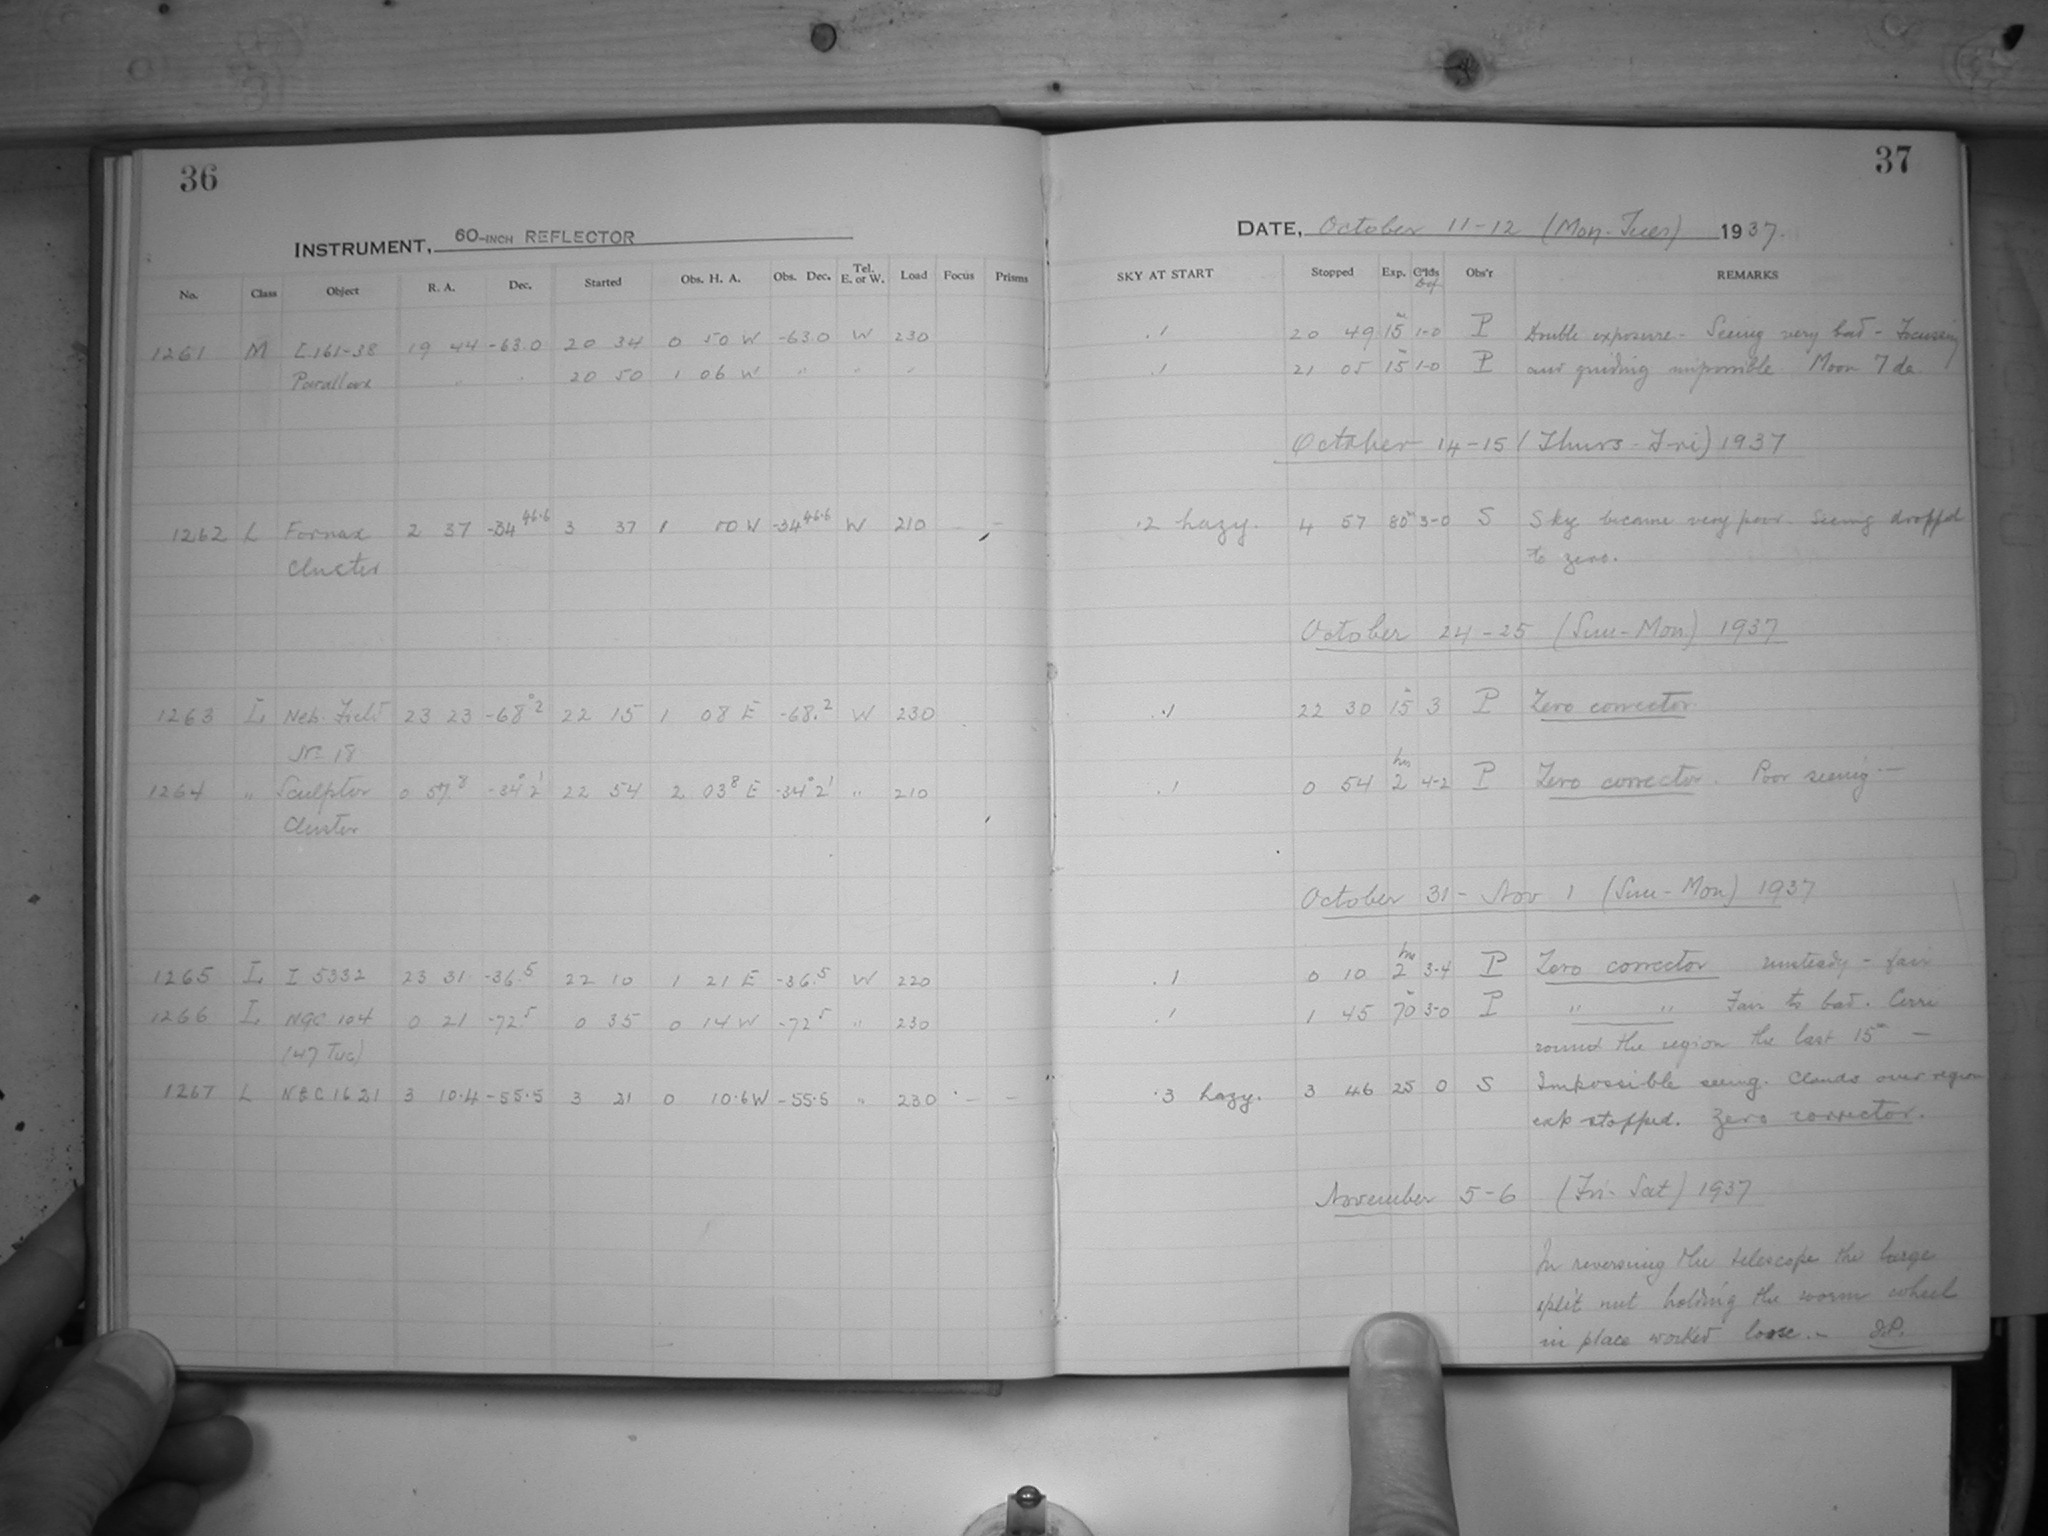 36
INSTRUMENT, 60-INCH REFLECTOR
No. Class Object R. A. Dec. Started Obs. H. A. Obs. Dec. Tel. E. or W. Load Focus Prisms
1261 M L161-38 19 44 -63.0 20 34 0 50 W -63.0 W 230
Parallax " " 20 50 1 06 W " " "
1262 L Fornax 2 37 -34 46.6 3 37 1 00 W -34 46.6 W 210 - -
Cluster
1263 L Neb. Field 23 23 -68°2 22 15 1 08 E -68.2 W 230
No 18
1264 " Sculptor 0 57.8 -34°2' 22 54 2 03.8 E -34°2' " 210
Cluster
1265 L I 5332 23 31 -36.5 22 10 1 21 E -36.5 W 220
1266 L NGC 104 0 21 -72.5 0 35 0 14 W -72.5 " 230
(47 Tuc)
1267 L NGC 1621 3 10.4 -55.5 3 21 0 10.6 W -55.5 " 230 - -
37
DATE, October 11-12 (Mon-Tues) 1937.
SKY AT START Stopped Exp. Obs'r REMARKS
.1 20 49 15m 1-0 P Double exposure - Seeing very bad - Focusing
.1 21 05 15m 1-0 P and guiding impossible Moon 7 da
October 14-15 (Thurs-Fri) 1937
.2 hazy. 4 57 80m 3-0 S Sky became very poor. Seeing dropped
to zero.
October 24-25 (Sun-Mon) 1937
.1 22 30 15m 3 P Zero corrector
.1 0 54 2hrs 4-2 P Zero corrector. Poor seeing -
October 31 - Nov 1 (Sun-Mon) 1937
.1 0 10 2hrs 3-4 P Zero corrector unsteady - fair
.1 1 45 70m 3-0 P " " Fair to bad. Cirri
round the region the last 15m -
.3 hazy. 3 46 25 0 S Impossible seeing. Clouds over region
exp stopped. Zero corrector.
November 5-6 (Fri-Sat) 1937
In reversing the telescope the large
split nut holding the worm wheel
in place worked loose. - J.P.